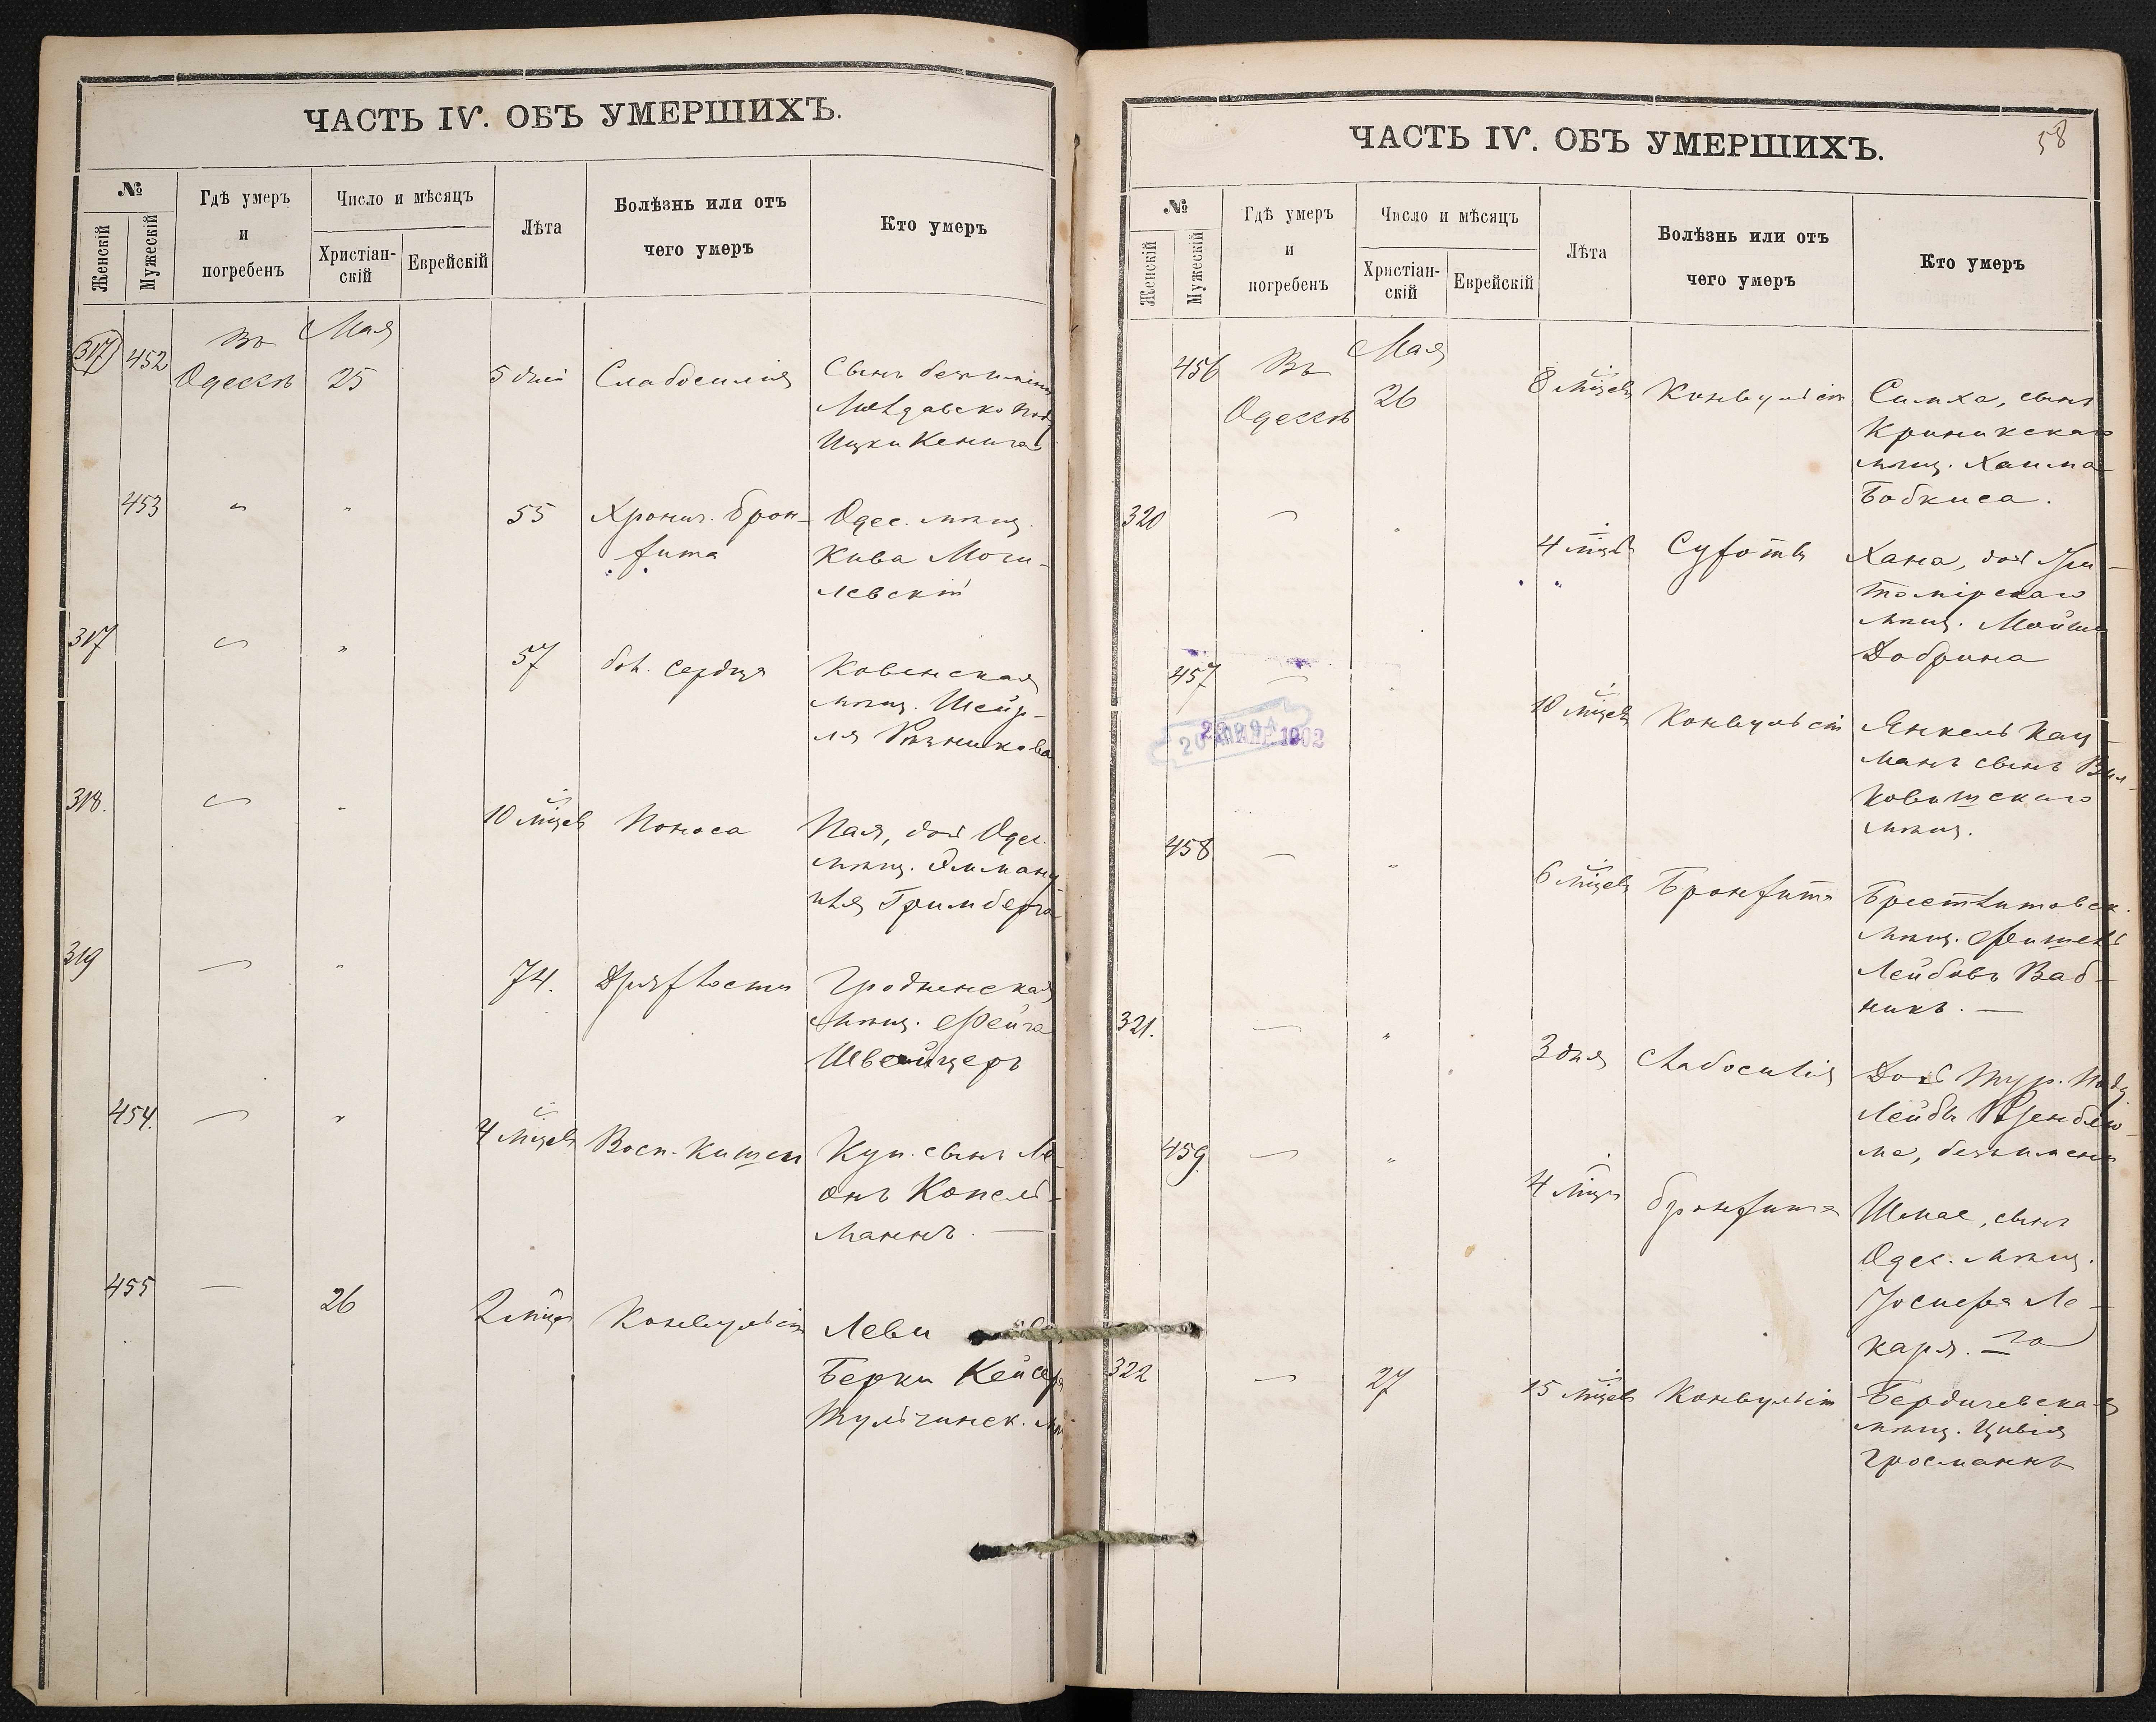 ЧАСТЬ IV. ОБЪ УМЕРШИХЪ.
№
Женскій
Мужескій
Гдѣ умеръ
и
погребенъ
Число и мѣсяцъ
Христіан-
скій
Еврейскій
Лѣта
Болѣзнь или отъ
чего умеръ
Кто умеръ
317 452 Въ Одессѣ Мая 25 5 дней Слабосилія Сынъ безъимен.
Молдавско под
Ицки Кенига
453 " " 55 Хронич. брон-
хита
Одес. мѣщ.
Кива Моги-
левскій
317 " " 57 бол. сердца Ковенская
мѣщ. Шейд-
ля Рѣзникова
318. " " 10 мѣцевъ Поноса Пая, дочь Одес.
мѣщ. Эмману-
иля Гримберга
319 — " 74. Дряхлости Гродненская
мѣщ. Фейга
Швейцеръ
454. — " 4 мѣцевъ Восп. кишек Куп. сынъ Ле-
онъ Копель-
манъ. —
455 — 26 2 мѣця Конвульсіи Леви
Берки Кейсера
Тульчинск. мѣ
ЧАСТЬ IV. ОБЪ УМЕРШИХЪ.
58
№
Женскій
Мужескій
Гдѣ умеръ
и
погребенъ
Число и мѣсяцъ
Христіан-
скій
Еврейскій
Лѣта
Болѣзнь или отъ
чего умеръ
Кто умеръ
456 Въ Одессѣ Мая 26 8 мѣцевъ Конвульсіи Симха, сынъ
Криникскаго
мѣщ. Хаима
Бобкиса.
320 — " 4 мѣцевъ Сухоты Хана, дочь Жи-
томірскаго
мѣщ. Мойши
Добрина
457 — " 10 мѣцевъ Конвульсіи Янкель Кац-
манъ сынъ Вил-
ковишскаго
мѣщ.
1902
458 — " 6 мѣцевъ Бронхита Брестлитовск.
мѣщ. Фишель
Лейбовъ Баб-
никъ. —
321. — " 3 дня Слабосилія Дочь Тур. под
Лейбы Розенблю-
ма, безъимен
459. — " 4 мѣця бронхита Шмае, сынъ
Одес. мѣщ.
Іосифа Ле-
каря. — го
322 — 27 15 мѣцевъ Конвульсіи Бердичевская
мѣщ. Цивія
Гросманъ